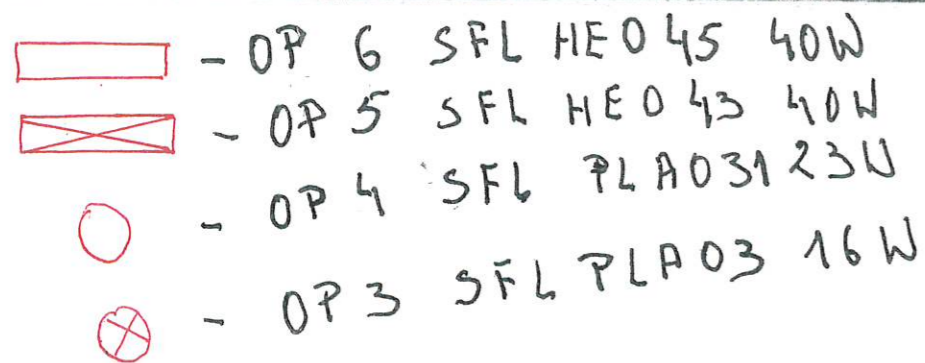 - OP 6 SFL HEO 45 40W
- OP 5 SFL HEO 43 40W
- OP 4 SFL PLA031 23W
- OP 3 SFL PLA03 16W